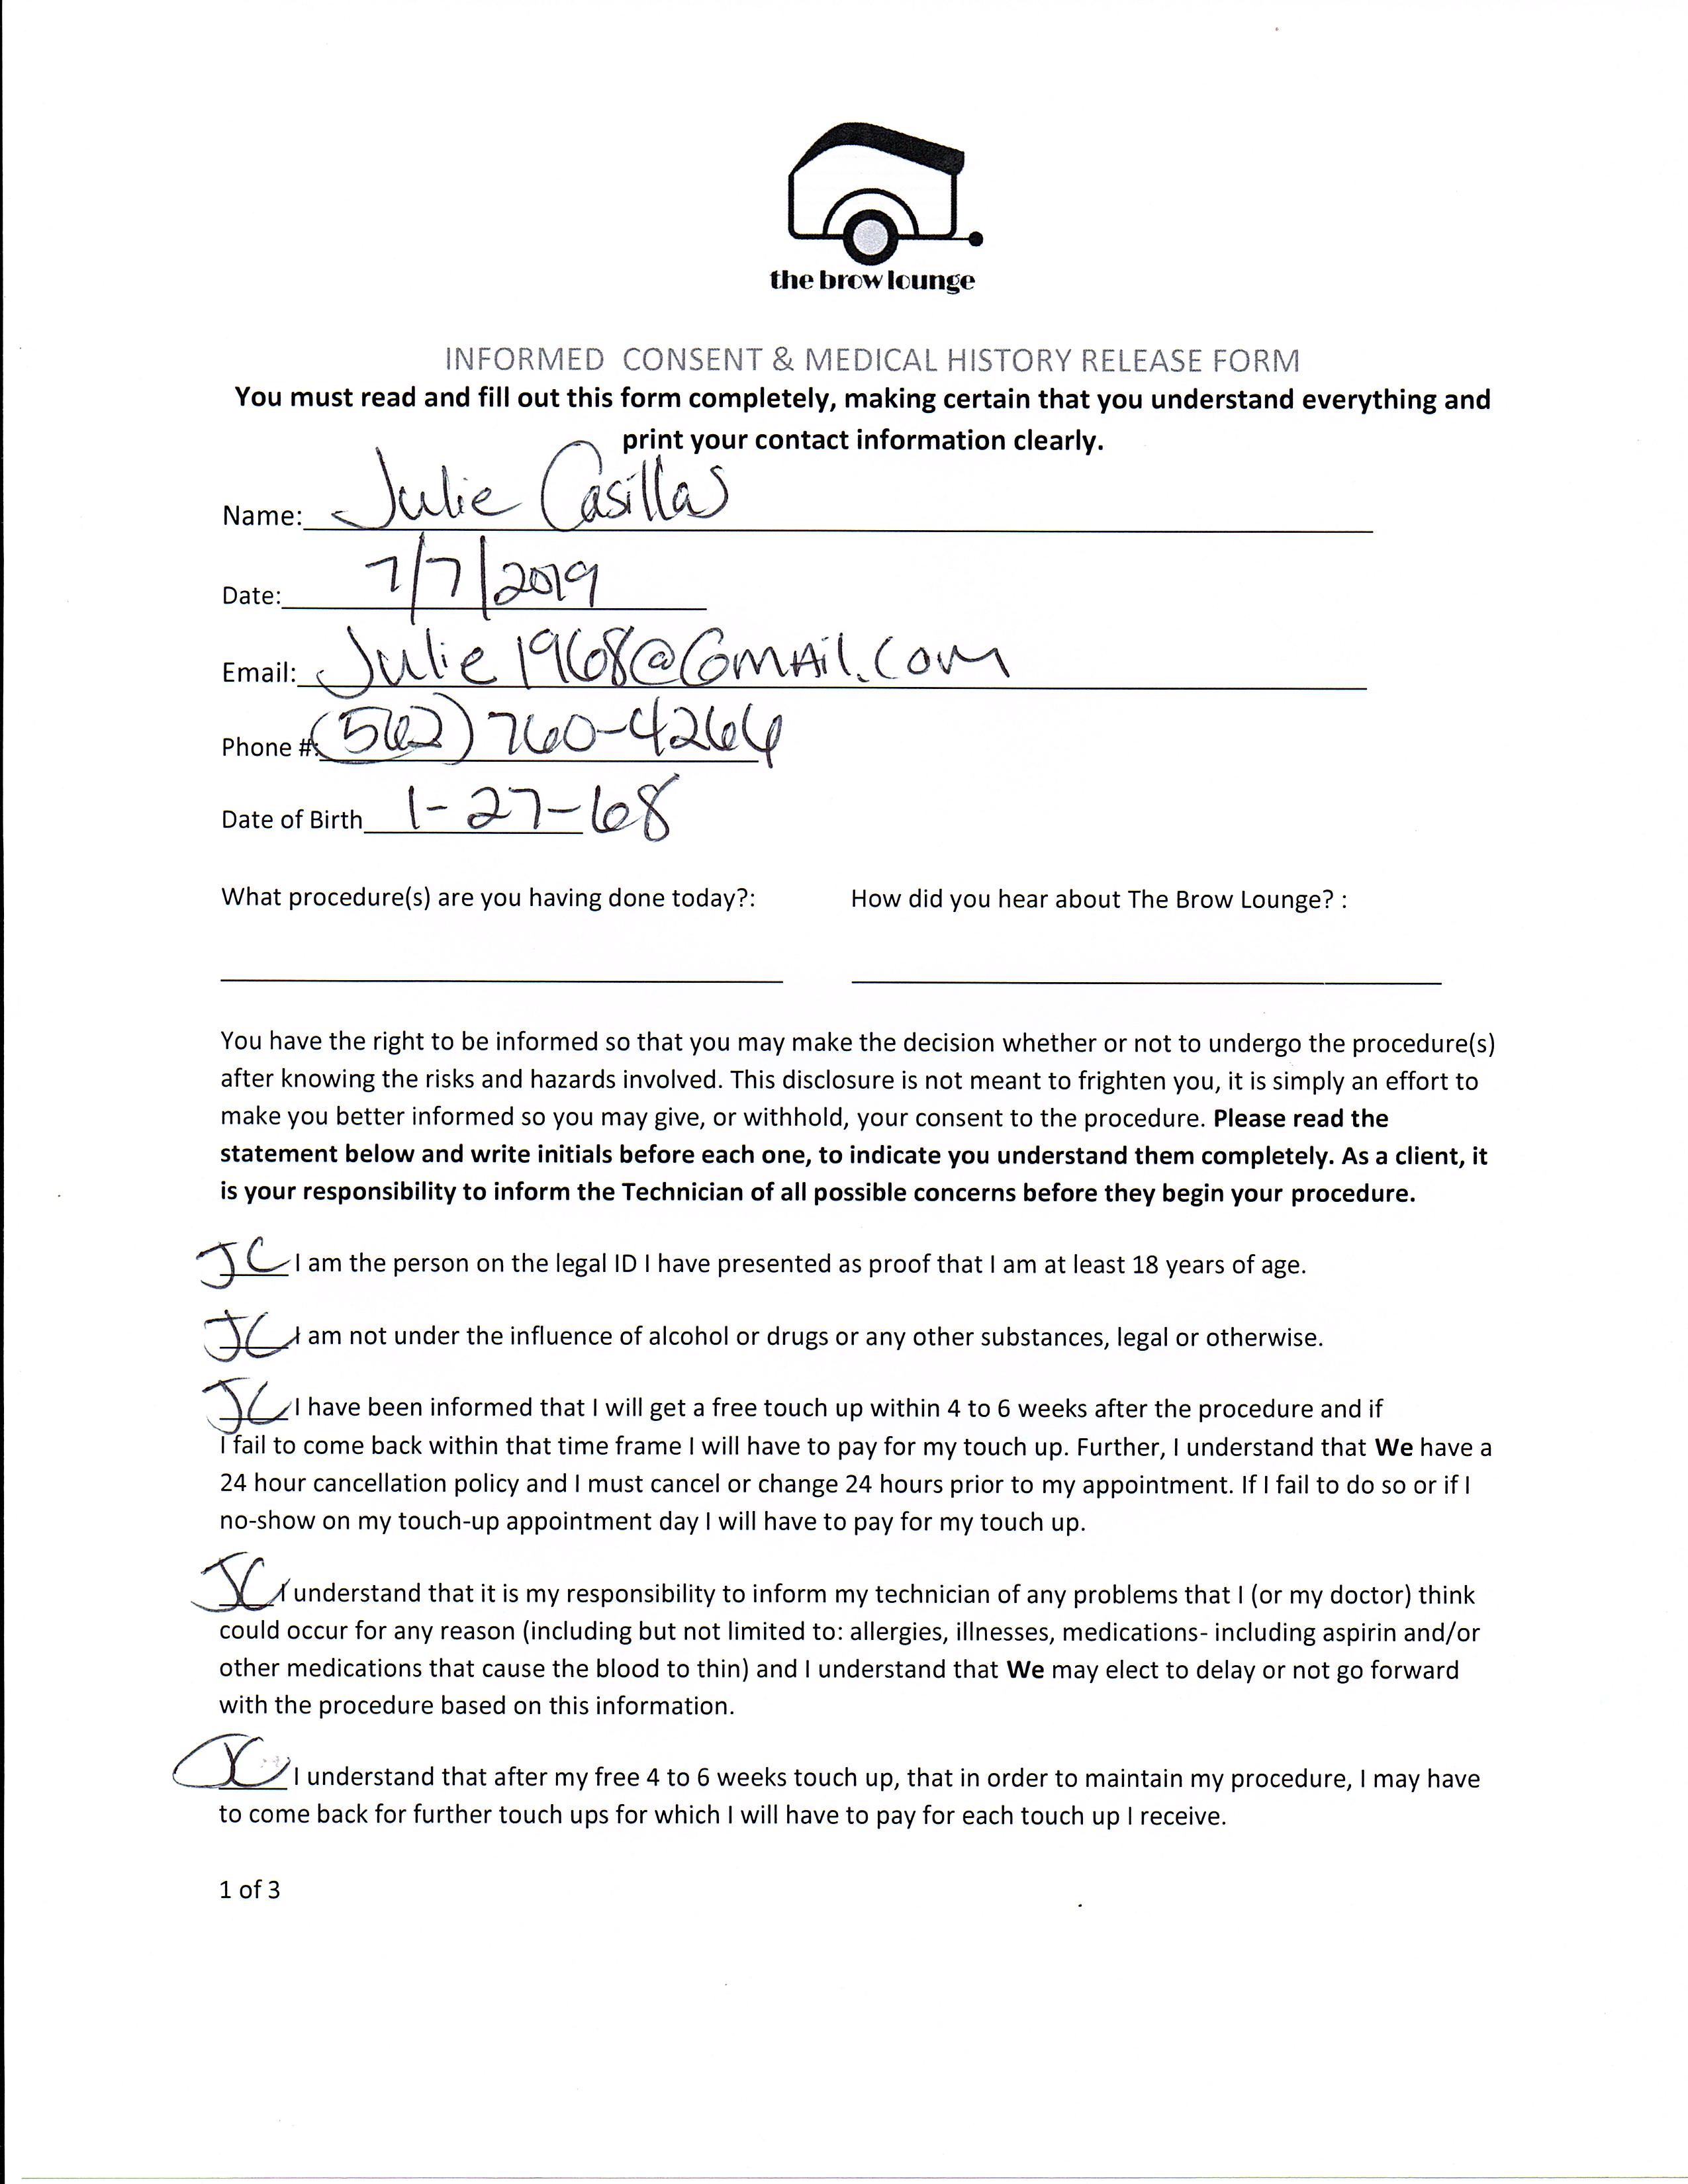 the brow lounge
INFORMED CONSENT & MEDICAL HISTORY RELEASE FORM
You must read and fill out this form completely, making certain that you understand everything and
print your contact information clearly.
Name: Julie Casillas
Date: 7/7/2019
Email: Julie1968@Gmail.com
Phone #: (562) 760-4264
Date of Birth 1-27-68
What procedure(s) are you having done today?: How did you hear about The Brow Lounge? :
You have the right to be informed so that you may make the decision whether or not to undergo the procedure(s)
after knowing the risks and hazards involved. This disclosure is not meant to frighten you, it is simply an effort to
make you better informed so you may give, or withhold, your consent to the procedure. Please read the
statement below and write initials before each one, to indicate you understand them completely. As a client, it
is your responsibility to inform the Technician of all possible concerns before they begin your procedure.
JC I am the person on the legal ID I have presented as proof that I am at least 18 years of age.
JC I am not under the influence of alcohol or drugs or any other substances, legal or otherwise.
JC I have been informed that I will get a free touch up within 4 to 6 weeks after the procedure and if
I fail to come back within that time frame I will have to pay for my touch up. Further, I understand that We have a
24 hour cancellation policy and I must cancel or change 24 hours prior to my appointment. If I fail to do so or if I
no-show on my touch-up appointment day I will have to pay for my touch up.
JC I understand that it is my responsibility to inform my technician of any problems that I (or my doctor) think
could occur for any reason (including but not limited to: allergies, illnesses, medications- including aspirin and/or
other medications that cause the blood to thin) and I understand that We may elect to delay or not go forward
with the procedure based on this information.
JC I understand that after my free 4 to 6 weeks touch up, that in order to maintain my procedure, I may have
to come back for further touch ups for which I will have to pay for each touch up I receive.
1 of 3